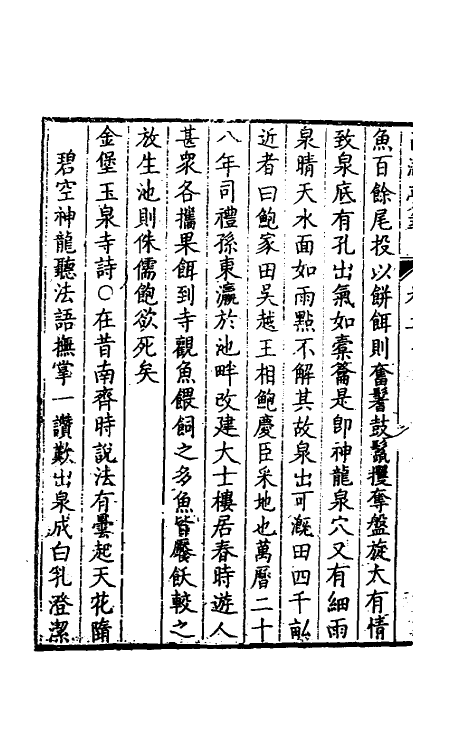 魚百餘尾投以餅餌則奮鬐鼓鬣攫奪盤旋大有情
致泉底有孔出氣如橐籥是卽神龍泉穴又有細雨
泉晴天水面如雨點不解其故泉出可漑田四千畝
近者曰鮑家田吳越王相鮑慶臣采地也萬曆二十
八年司禮孫東瀛於池畔改建大士樓居春時遊人
甚衆各攜果餌到寺觀魚餵飼之多魚皆饜飫較之
放生池則侏儒飽欲死矣
金堡玉泉寺詩○在昔南齊時說法有曇起天花隋
碧空神龍聽法語撫掌一讚歎出泉成白乳澄潔